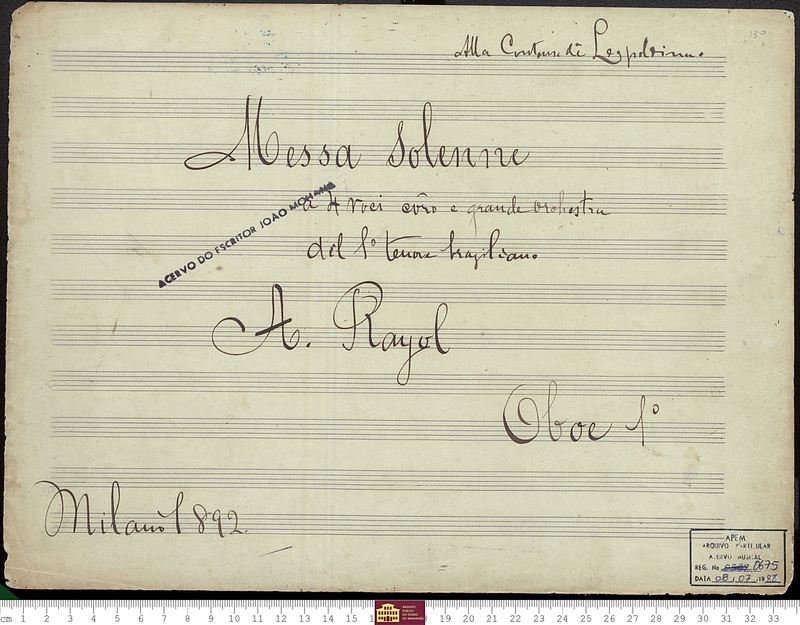 Alla
Messa Solenne
a 4 voci côro e grande orchestra
del 1º tenore braziliano
A. Rayol
Oboe 1º
Milano 1892
ACERVO DO ESCRITOR JOAO MOHANA
APEM
ARQUIVO PARTICULAR
ACERVO MUSICAL
REG. No 0675
DATA 08, 07, 1988
cm 1 2 3 4 5 6 7 8 9 10 11 12 13 14 15 1 19 20 21 22 23 24 25 26 27 28 29 30 31 32 33
ARQUIVO
PÚBLICO
DO ESTADO
DO MARANHÃO